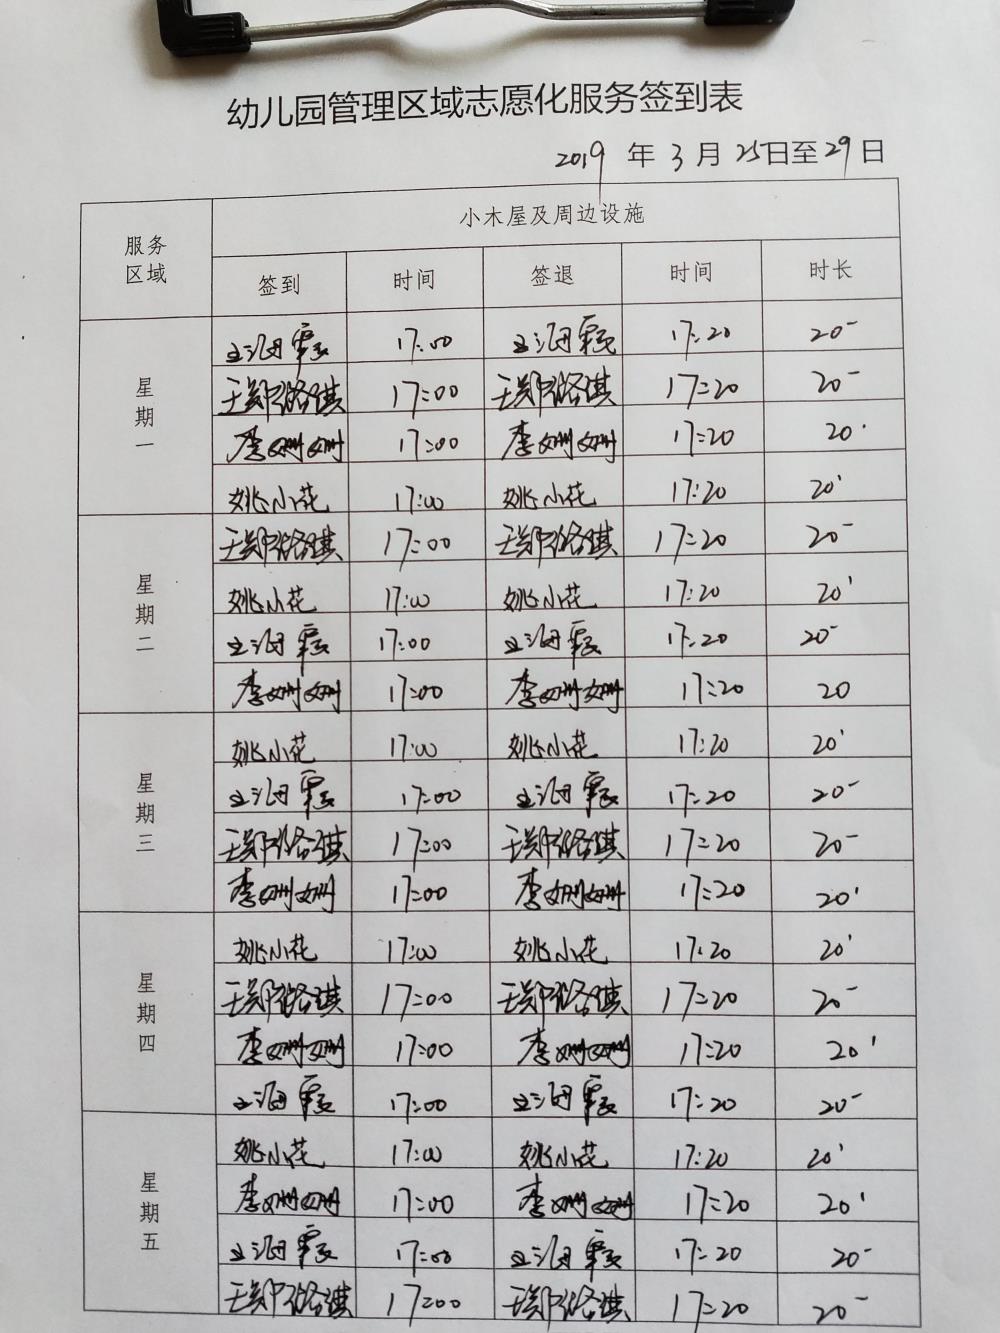 幼儿园管理区域志愿化服务签到表
2019 年 3 月 25日至29日
服务区域 小木屋及周边设施
签到 时间 签退 时间 时长
星期一
王海霞 17:00 王海霞 17:20 20-
王郑璐琪 17:00 王郑璐琪 17:20 20-
李姗姗 17:00 李姗姗 17:20 20'
姚小花 17:00 姚小花 17:20 20'
星期二
王郑璐琪 17:00 王郑璐琪 17:20 20-
姚小花 17:00 姚小花 17:20 20'
王海霞 17:00 王海霞 17:20 20-
李姗姗 17:00 李姗姗 17:20 20
星期三
姚小花 17:00 姚小花 17:20 20'
王海霞 17:00 王海霞 17:20 20-
王郑璐琪 17:00 王郑璐琪 17:20 20-
李姗姗 17:00 李姗姗 17:20 20'
星期四
姚小花 17:00 姚小花 17:20 20'
王郑璐琪 17:00 王郑璐琪 17:20 20-
李姗姗 17:00 李姗姗 17:20 20'
王海霞 17:00 王海霞 17:20 20-
星期五
姚小花 17:00 姚小花 17:20 20'
李姗姗 17:00 李姗姗 17:20 20'
王海霞 17:00 王海霞 17:20 20-
王郑璐琪 17:00 王郑璐琪 17:20 20-